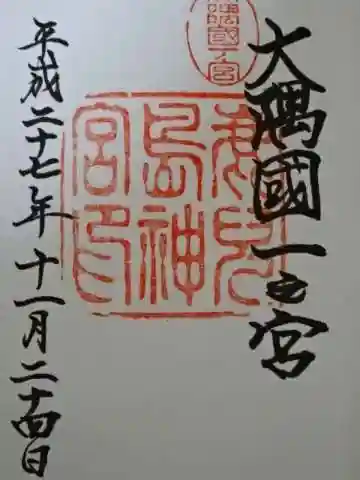 大隅國一之宮
隅國一宮
鹿兒島神宮印
平成二十七年十一月二十四日